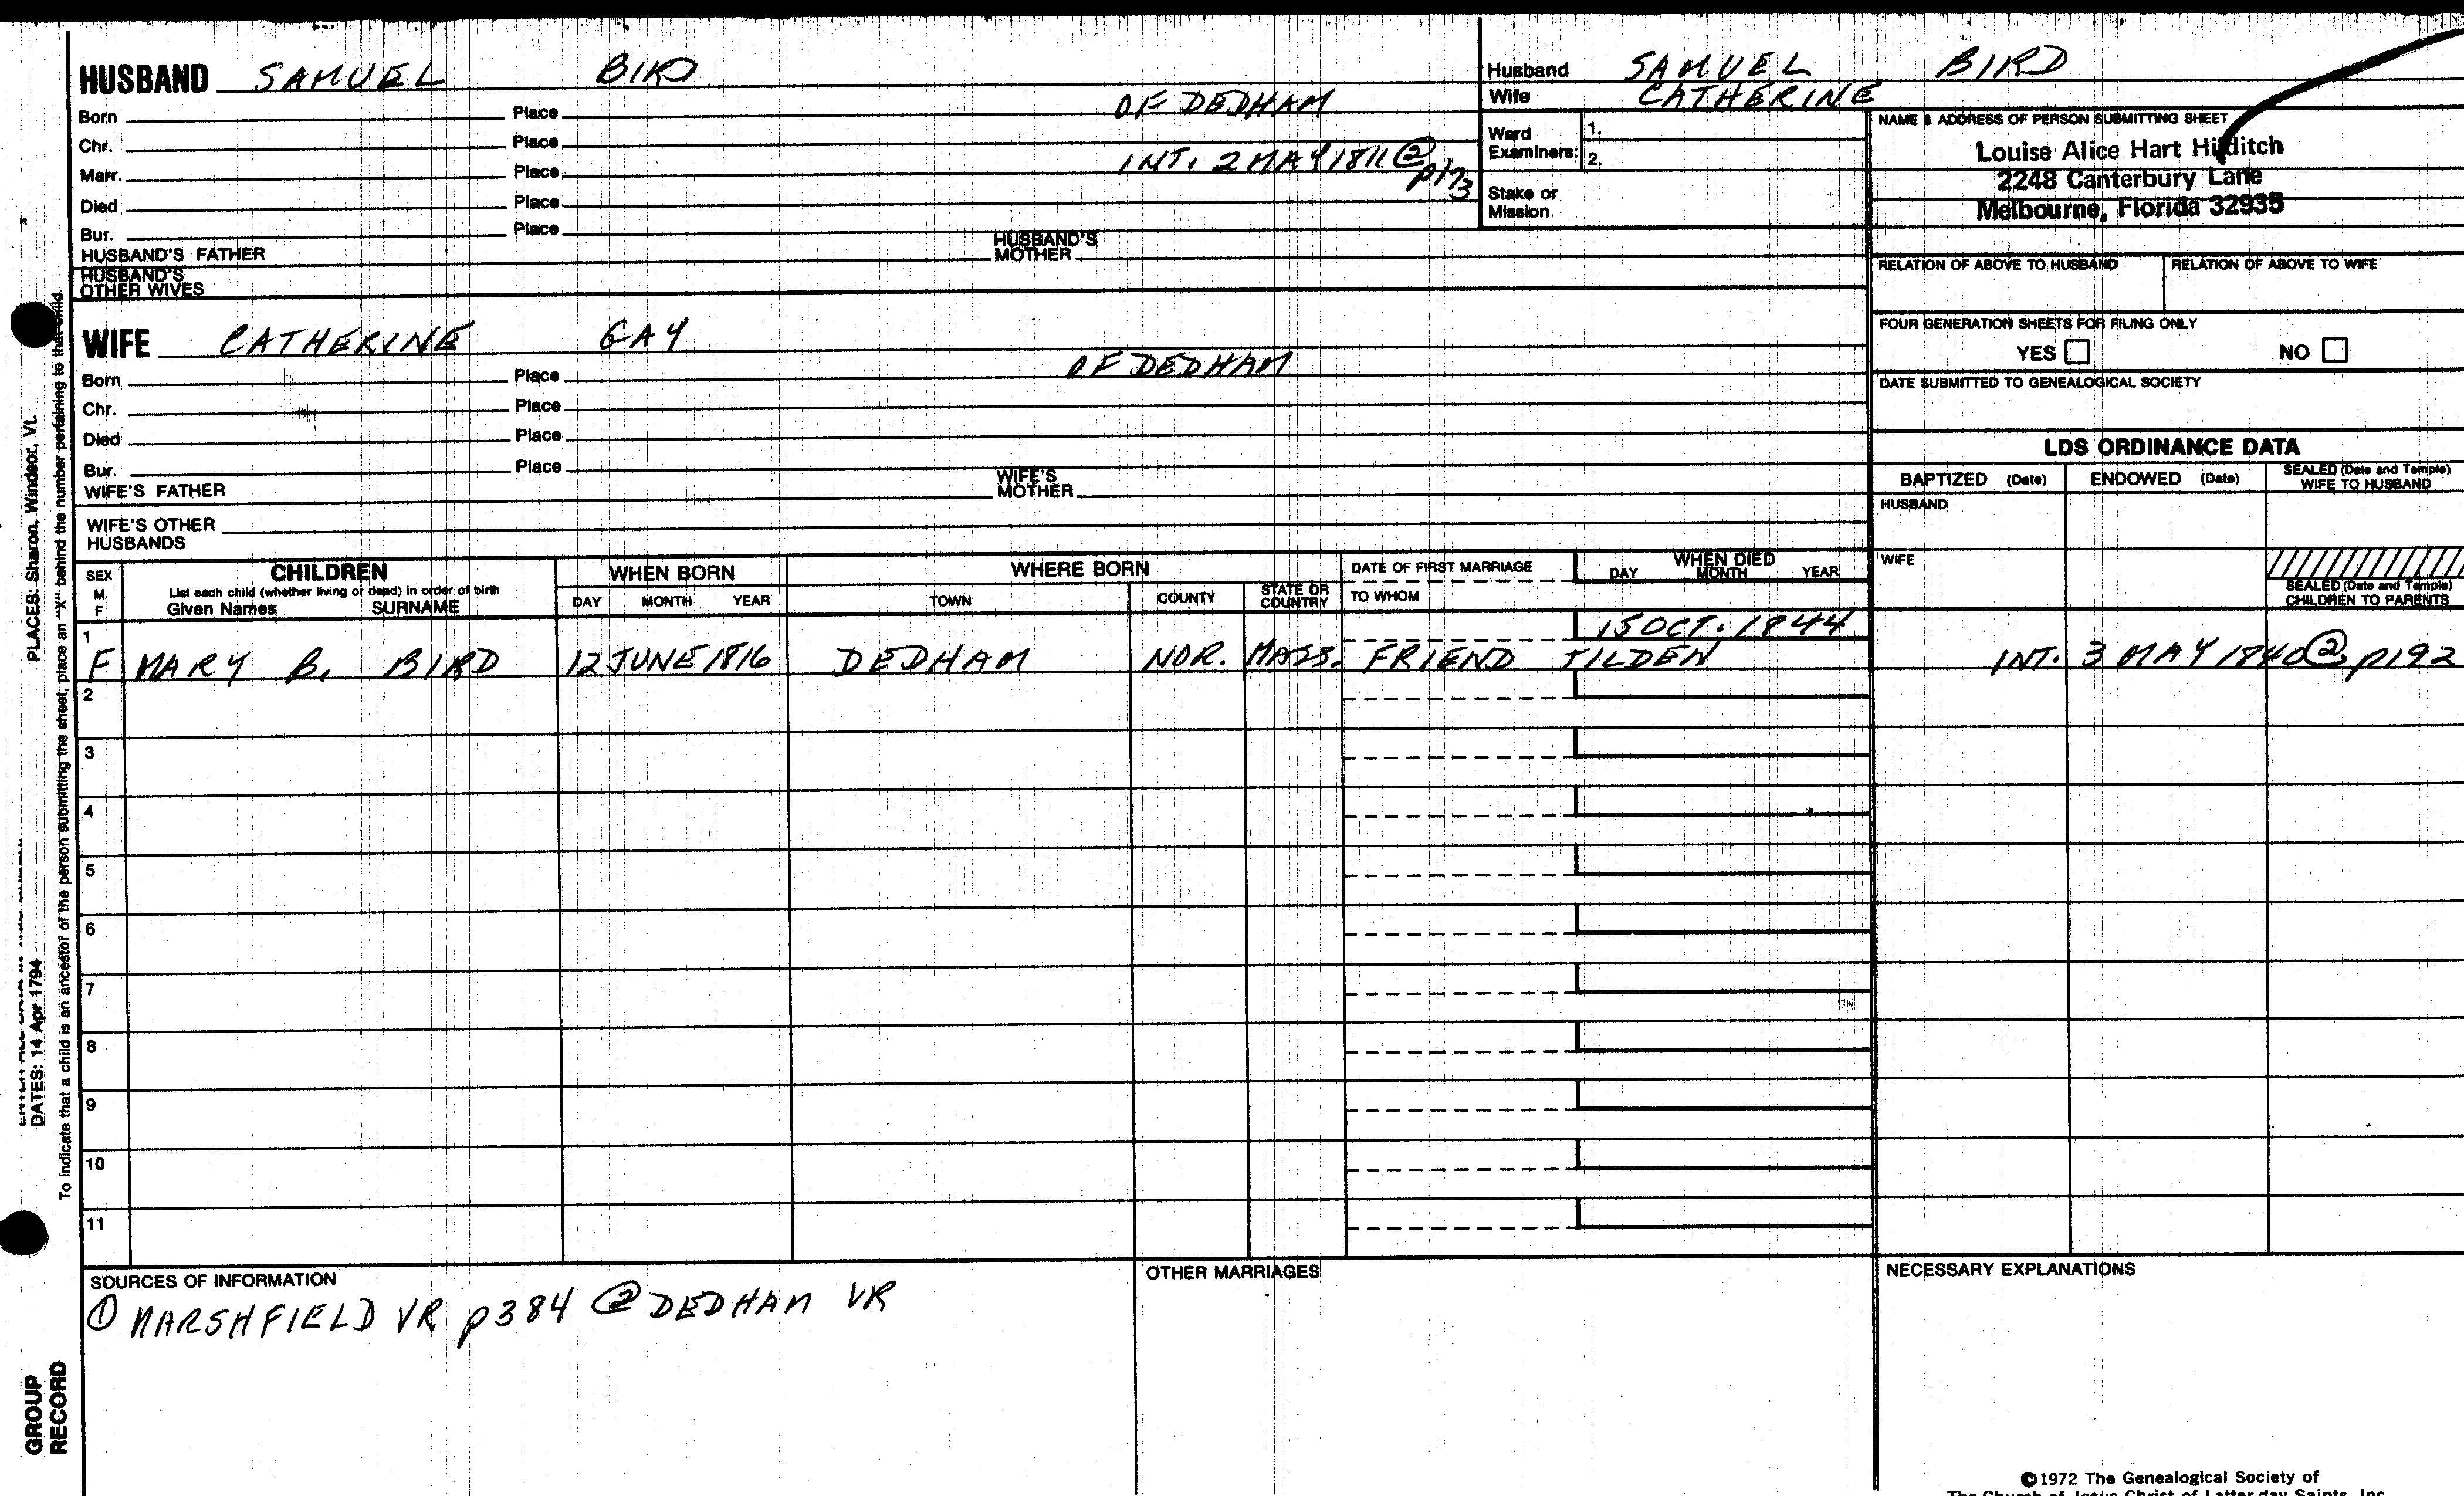 HUSBAND SAMUEL BIRD
Born Place OF DEDHAM
Chr. Place
Marr. Place INT. 2 MAY 1811 ② p173
Died Place
Bur. Place
HUSBAND'S FATHER HUSBAND'S MOTHER
HUSBAND'S OTHER WIVES
WIFE CATHERINE GAY
Born Place OF DEDHAM
Chr. Place
Died Place
Bur. Place
WIFE'S FATHER WIFE'S MOTHER
WIFE'S OTHER HUSBANDS
Husband SAMUEL BIRD
Wife CATHERINE
Ward Examiners: 1.
2.
Stake or Mission
NAME & ADDRESS OF PERSON SUBMITTING SHEET
Louise Alice Hart Hilditch
2248 Canterbury Lane
Melbourne, Florida 32935
RELATION OF ABOVE TO HUSBAND RELATION OF ABOVE TO WIFE
FOUR GENERATION SHEETS FOR FILING ONLY
YES NO
DATE SUBMITTED TO GENEALOGICAL SOCIETY
LDS ORDINANCE DATA
BAPTIZED (Date) ENDOWED (Date) SEALED (Date and Temple) WIFE TO HUSBAND
HUSBAND
WIFE
SEALED (Date and Temple) CHILDREN TO PARENTS
SEX M F
CHILDREN
List each child (whether living or dead) in order of birth
Given Names SURNAME
WHEN BORN
DAY MONTH YEAR
WHERE BORN
TOWN COUNTY STATE OR COUNTRY
DATE OF FIRST MARRIAGE
TO WHOM
WHEN DIED
DAY MONTH YEAR
1 15 OCT. 1844
F MARY B. BIRD 12 JUNE 1816 DEDHAM NOR. MASS. FRIEND TILDEN INT. 3 MAY 1840 ② p192
2
3
4
5
6
7
8
9
10
11
SOURCES OF INFORMATION
① MARSHFIELD VR p384 ② DEDHAM VR
OTHER MARRIAGES
NECESSARY EXPLANATIONS
©1972 The Genealogical Society of
The Church of Jesus Christ of Latter-day Saints, Inc.
PLACES: Sharon, Windsor, Vt.
DATES: 14 Apr 1794
To indicate that a child is an ancestor of the person submitting the sheet, place an "X" behind the number pertaining to that child.
GROUP
RECORD